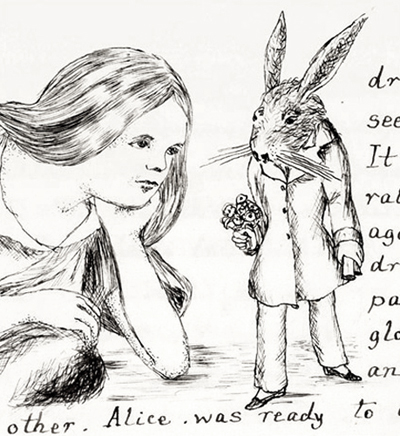 dr
see
It
rat
aga
dr
pa
glo
an
other. Alice was ready to